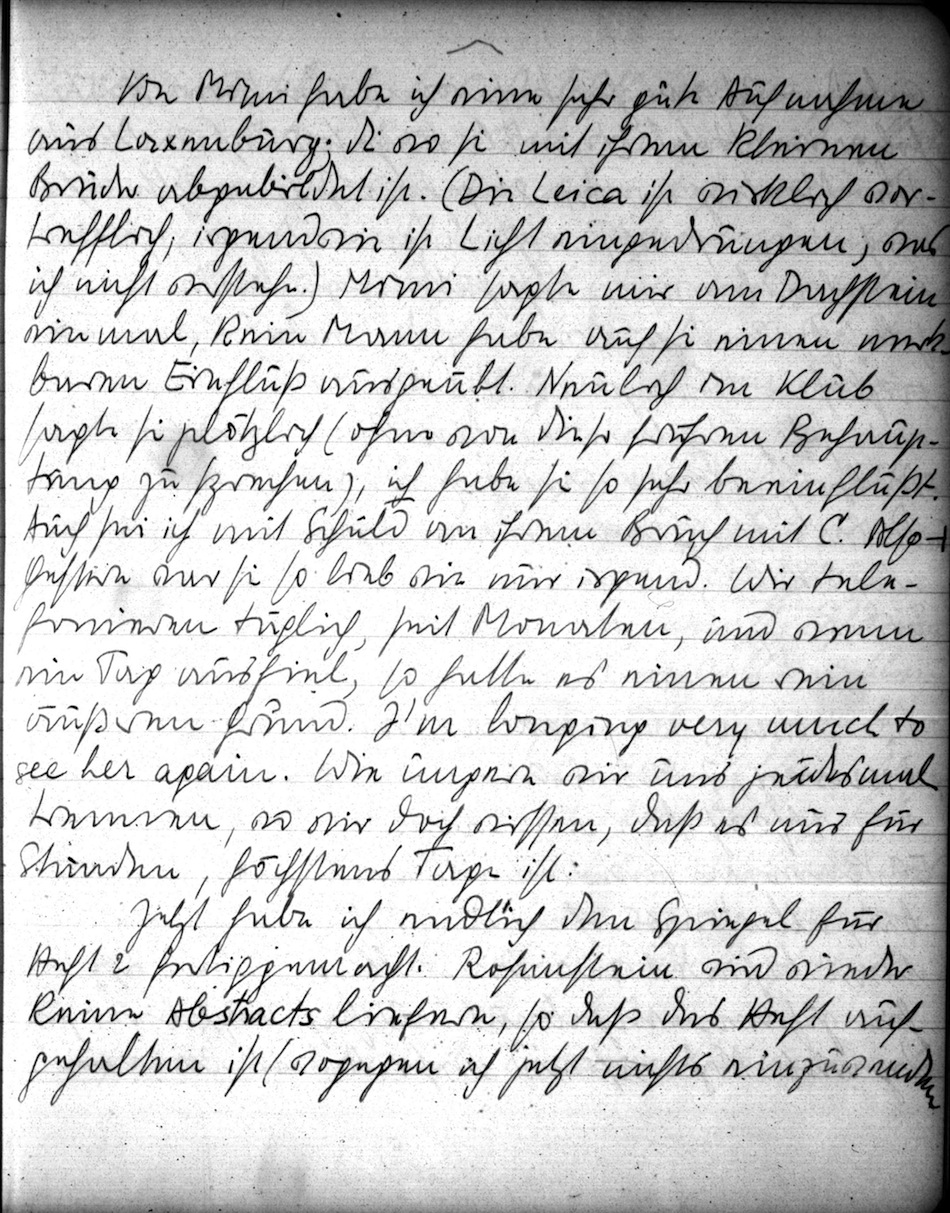 Von Mimi habe ich eine sehr gute Aufnahme
aus Laxenburg: die wo sie mit ihrem kleinen
Bruder abgebildet ist. (Die Leica ist wirklich vor-
trefflich; irgendwie ist Licht eingedrungen, was
ich nicht verstehe.) Mimi sagte mir am Dachstein
einmal, kein Mann habe auf sie einen merk-
baren Einfluß ausgeübt. Neulich im Klub
sagte sie plötzlich (ohne von dieser früheren Behaup-
tung zu sprechen), ich habe sie so sehr beeinflußt.
Auch sei ich mit Schuld an ihrem Bruch mit C. Also –
Gestern war sie so lieb wie nur irgend. Wir tele-
fonieren täglich, seit Monaten, und wenn
ein Tag ausfiel, so hatte es einen rein
äußeren Grund. I'm longing very much to
see her again. Wie ungern wir uns jedesmal
trennen, wo wir doch wissen, daß es nur für
Stunden, höchstens Tage ist.
Jetzt habe ich endlich den Spiegel für
Heft 2 fertiggemacht. Rosinstein wird wieder
keine Abstracts liefern, so daß das Heft auf-
gehalten ist (wogegen ich jetzt nichts einzuwenden